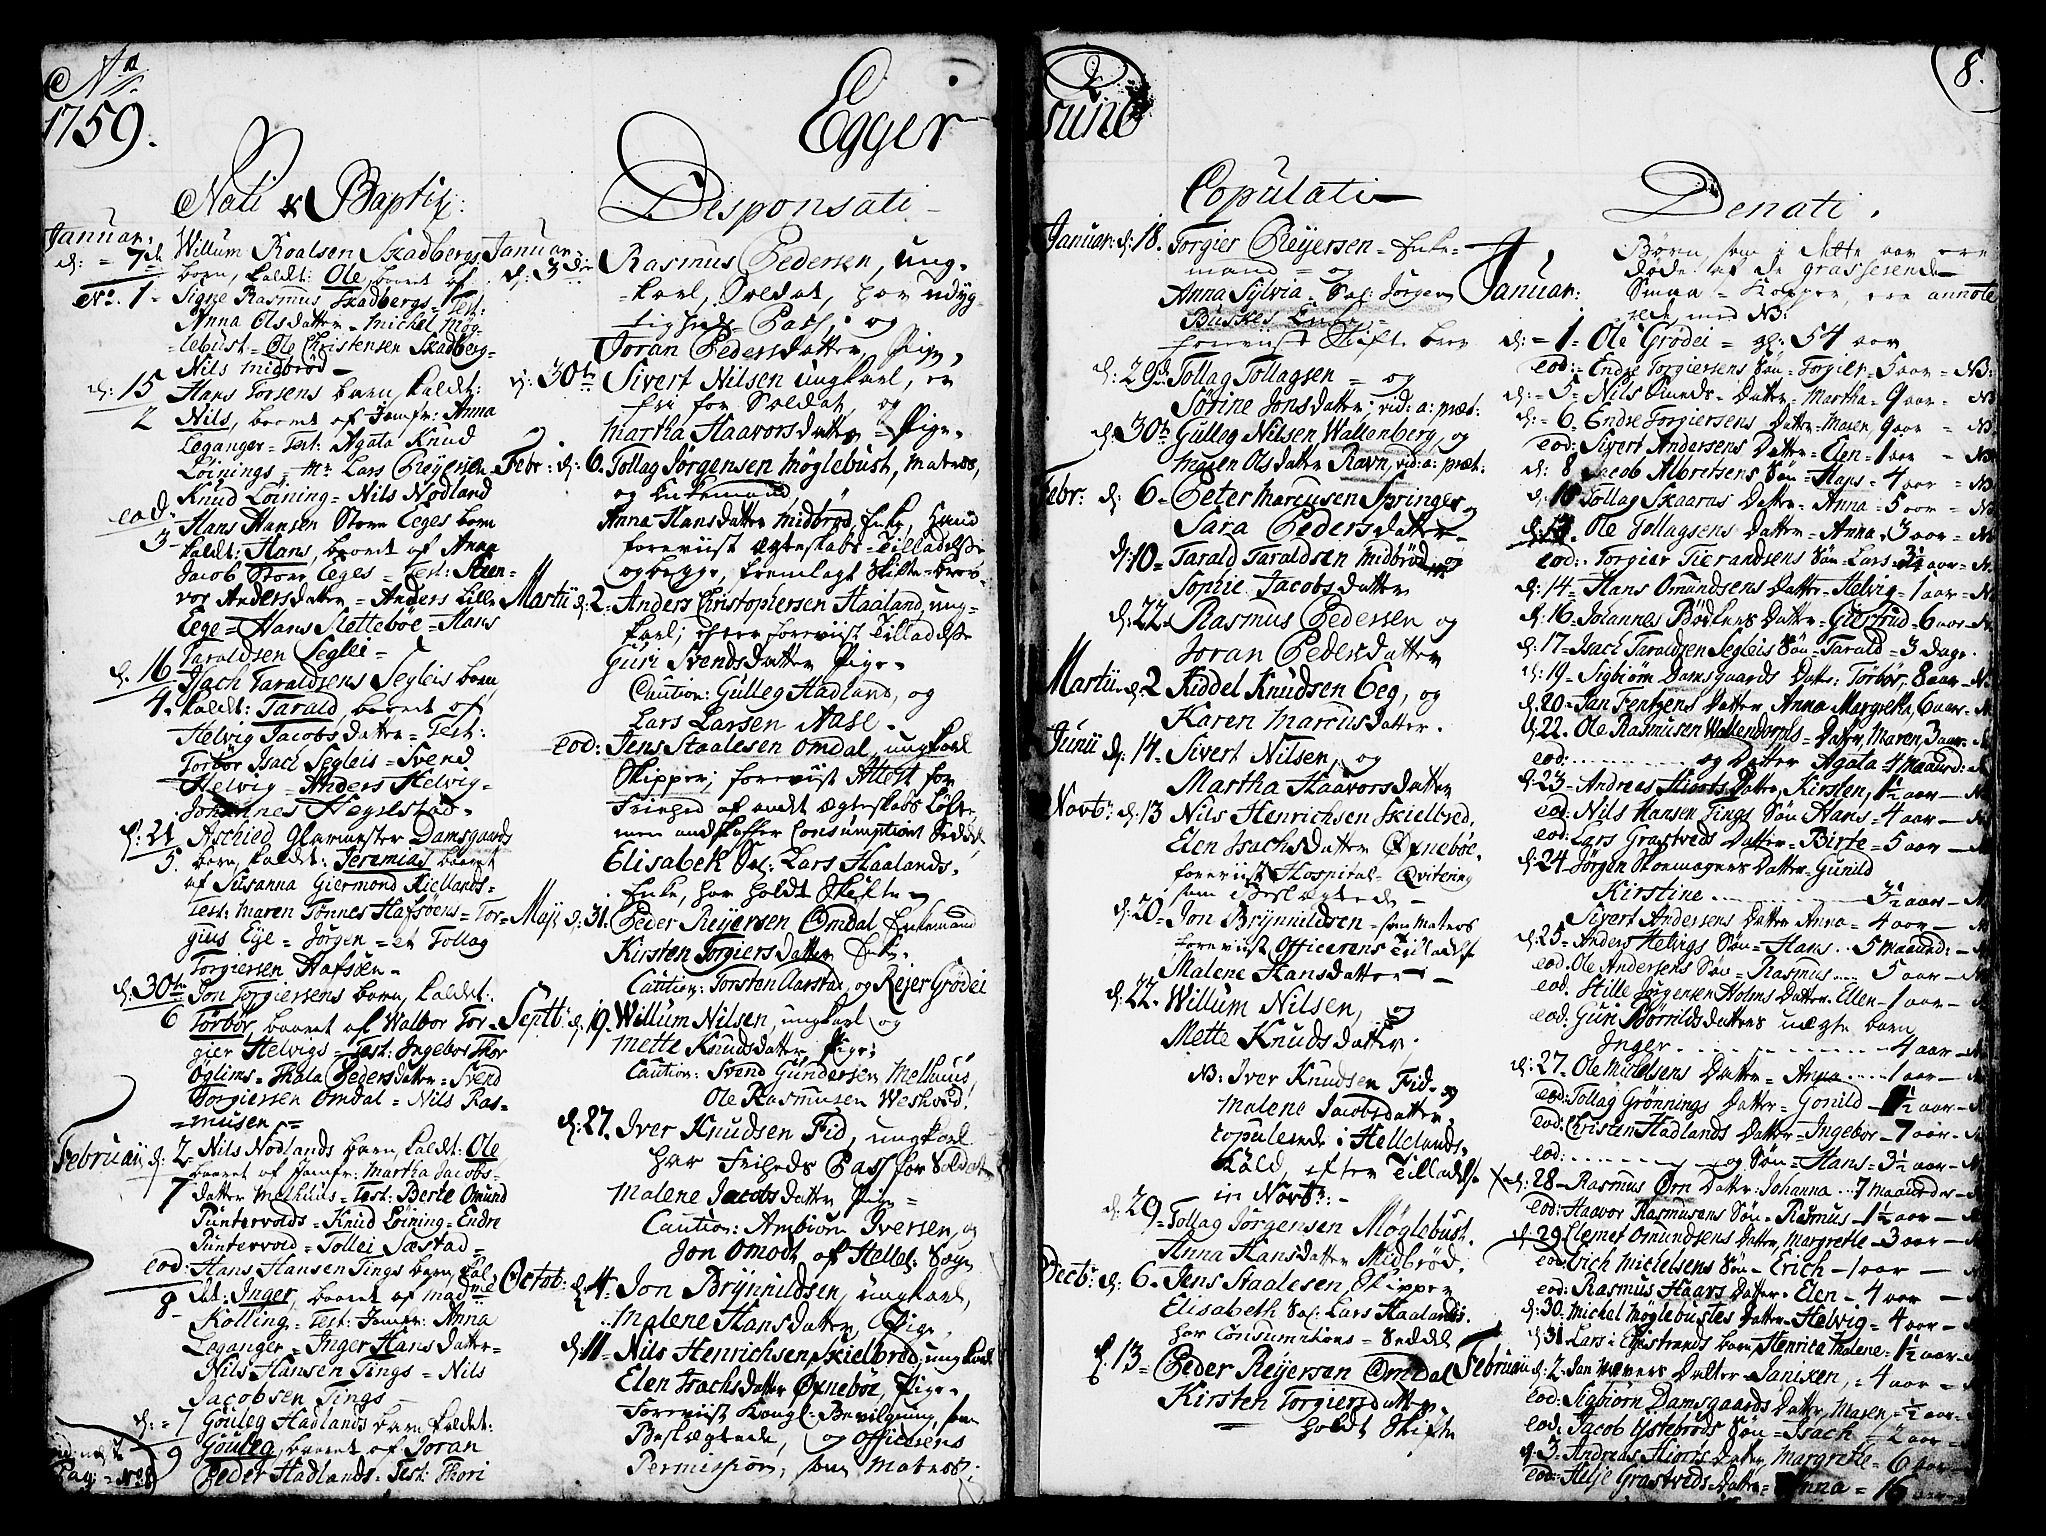 Aō
1759.
Egger
Nati & Baptiz:
Januar:
d: = 7de Willum Roalsen Skadbergs
barn, kaldt: Ole, baaret af
No. 1 - Signe Rasmus Skadbergs = Test:
Anna Olsdatter = Michel Mög-
lebust = Ole Christensen Skadberg =
Nils Midbröd -
d: 15 Hans Torsens barn, kaldt:
2 Nils, baaret af Jomfr: Anna
Leganger = Test: Agata Knud
Löinings = Mr Lars Reyersen
Knud Löining = Nils Nodland
eod: Hans Hansen Store Eeges barn
3 kaldt: Hans, baaret af Anna
Jacob Store Eeges = Test: Steen-
vor Andersdatter = Anders Lille
Eege = Hans Sletteböe = Hans
Taraldsen Seglei =
d. 16 Isach Taraldsens Segleis barn,
4. kaldt: Tarald, baaret af
Helvig Jacobsdatter = Test:
Torbör Isach Segleis = Svend
Helvig = Anders Helvig =
Johannes Hegelstad =
d: 21 Aschied Glarmester Damsgaards
5. barn, kaldt: Jeremias baaret
af Susanna Giermond Kiellands =
Test: Maren Tönnes Hafsöens = Tor-
gius Eye = Jörgen = et Tollag
Torgiersen Hafsöen -
d: 30te Jon Torgiersens barn, kaldet:
6 Törbör, baaret af Walbor Tor-
gier Helvigs = Test: Ingebor Thor
Oglims = Thala Pedersdatter = Svend
Torgiersen Omdal = Nils Ras-
musen =
Februarii d: 2 - Nils Nodlands barn, kaldt: Ole
baaret af Jomfr: Martha Jacobs-
7 datter Melhuus = Test: Berte Omund
Puntervolds = Knud Löining = Endre
Puntervold = Tollei Sæstad =
eod: Hans Hansen Tings barn, kal-
8 det: Inger, baaret af Madme
Kolling = Test: Jomfr: Anna
Leganger = Inger Hansdatter =
Nils Hansen Tings = Nils
Jacobsen Tings -
d: = 7 Gouleg Hadlands barn kaldet:
9 Gouleg, baaret af Joran
Peder Hadlands = Test: Thori
Desponsati -
Januar:
d: 3die Rasmus Pedersen, ung-
karl, Soldat, har udyg-
tigheds Pass, og
Joran Pedersdatter, Pige,
d: 30te Sivert Nilsen ungkarl, er
fri for Soldat, og
Martha Haavorsdatter = Pige.
Febr: d: 6. Tollag Jörgensen Möglebust, Matros,
og Enkemand,
Anna Hansdatter Midbröd, Enke, hand
foreviist Ægteskabs-Tilladelse
og begge, fremlagt Skifte-brev.
Martii d: 2. Anders Christophersen Haaland, ung-
karl; Chven foreviist Tilladelse
Guri Svendsdatter Pige.
Caution: Gulleg Hadland, og
Lars Larsen Aase.
eod: Jens Staalesen Omdal, ungkarl
Skipper; foreviist Attest for
Friehed af andt Ægteskabs Löfte,
men andskaffer Consumptions Seddel
Elisabek Sal: Lars Haalands.
Enke, har holdt Skifte -
Maji d: 31. Peder Reyersen Omdal Enkemand
Kirsten Torgiersdatter Enk.
Caution: Torsten Aarstad, og Rejer Grödei
Septb: d: 19. Willum Nilsen, ungkarl og
Mette Knudsdatter Pige;
Caution: Svend Gundersen Melhuus,
Ole Rasmusen Weshvod.
d: 27. Iver Knudsen Fid, ungkarl
har Friheds Pass for Soldat
Malene Jacobsdatter Pige =
Caution: Ambiörn Iversen, og
Jon Omodt af Hellel: Sogn
Octob: d: 4. Jon Brynnildsen, ungkarl,
Malene Hansdatter, Pige,
d: 11 = Nils Henrichsen Skielbred, ungkarl
Elen Isachsdatter Öxneböe, Pige,
Foreviist Kongl: Bevilgning, som
Beslægtede, og Officerens
Permission, som Matros.
sund
8.
Copulati -
Januar: d: 18. Torgier Reyersen = Enke-
mand = og
Anna Sylvia = Sal: Jörgen
Busses Enke, =
foreviist Skifte brev
d: 29de Tollag Tollagsen = og
Sörine Jonsdatter, vid: a: præt:
d: 30te Gulleg Nilsen Wattenberg, og
Maren Olsdatter Ravn, vid: a: præt:
Febr: d: 6 - Peter Marcusen Springer og
Sara Pedersdatter.
d: 10 = Tarald Taraldsen Midbröd, og
Sophie Jacobsdatter
d: 22. Rasmus Pedersen og
Joran Pedersdatter
Martii d: 2 Kiddel Knudsen Eeg, og
Karen Marcusdatter.
Junii d: 14. Sivert Nilsen, og
Martha Haavorsdatter
Novb: d: 13 Nils Henrichsen Skielbred,
Elen Isachsdatter Öxneböe,
foreviist Hospital = Qvitering
som Beslægtede -
d: 20 - Jon Brynnildsen - som Matros
foreviist Officerens Tilladelse
Malene Hansdatter -
d: 22. Willum Nilsen, og
Mette Knudsdatter.
NB: Iver Knudsen Fid = og
Malene Jacobsdatter,
copulerede i Hellelands-
Giæld, efter Tilladelse
in Novb: -
d: 29 = Tollag Jörgensen Möglebust.
Anna Hansdatter Midbröd.
Decb: d: 6 - Jens Staalesen, Skipper
Elisabeth Sal: Lars Haalands.
har Consumtions = Seddel
d: 13 = Peder Reyersen Omdal
Kirsten Torgiersdatter.
holdt Skifte
Denati.
Börn, som i dette aar ere
döde af de grasserende
Smaa = Kopper, ere annote-
rede, med NB:
Januar:
d: = 1 = Ole Grödei = gl: 54 aar
eod: = Endre Torgiersens Sön = Torgier = 5 aar = NB:
d: = 5 = Nils Omunds = Datter = Martha = 9 aar =
d: = 6 - Endre Torgiersens Datter = Maren, 9 aar =
eod: Sivert Andersens Datter = Elen = 1 aar =
d: 8 Jacob Albretsens Sön = Hans = 4 aar =
d: 10 Tollag Skaaras Datter = Anna = 5 aar =
Ole Tollagsens Datter = Anna = 3 aar =
eod: Torgier Tierandsens Sön = Lars 3½ aar =
d: 14 = Hans Omundsens Datter = Helvig = 1 aar =
d: 16 - Johannes Bödkers Datter = Giertrud = 6 aar
d: 17 = Isach Taraldsen Segleis Sön = Tarald = 3 dage.
d: 19 = Sigbiörn Damsgaards Datter: Törbör, 8 aar
d: 20 = Jan Fentzens Datter, Anna Margreta, 6 aar
d: 22. Ole Rasmusen Wallendorphs = Datter, Maren, 3 aar.
eod: ........ og Datter Agata 4 Maaned:
d: 23 - Andreas Hiorts Datter, Kirsten, 1½ aar -
eod: Nils Hansen Tings Sön Hans = 4 aar -
eod: Lars Grastveds Datter = Birte = 5 aar -
d: 24 Jörgen Skomagers Datter = Gunild
Kirstine ........ 3½ aar -
Sivert Andersens Datter Anna = 4 aar -
d: 25 = Anders Helvigs Sön = Hans .. 5 Maaned: -
eod: Ole Andersens Sön = Rasmus ... 5 aar -
eod: Stille Jörgensen Holms Datter = Ellen - 1 aar -
eod: Guri Borrildsdatters uægte barn
Inger ........ 4 aar -
d: 27. Ole Michelsens Datter = Anna .... 1 aar -
eod: Tollag Grönnings Datter = Gonild - 1½ aar -
eod: Christen Hadlands Datter = Ingebor - 7 aar -
eod: ........ og Sön = Hans = 3½ aar -
d: 28 - Rasmus Örn Datter: Johanna ... 7 Maaneder -
eod: Haavor Rasmusens Sön = Rasmus - 1½ aar -
d: 29 Clemet Omundsens Datter, Margrethe - 3 aar -
eod: Erich Michelsens Sön - Erich - 1 aar -
eod: Rasmus Haars Datter = Elen - 4 aar -
d: 30. Michel Möglebustes Datter - Helvig = 4 aar -
d: 31 Lars i Egistrands barn, Henrica Thalene = 1½ aar -
Februarii d: 2 - Jan Wævers Datter = Janiken, = 4 aar =
eod: Sigbiörn Damsgaards Datter, Maren = ½ aar -
eod: Jacob Ystebröds Sön = Isach = 2 aar =
d: 3 = Andreas Hiorts Datter Margrethe = 6 aar -
eod: Helje Grastveds Datter = Anna = 16